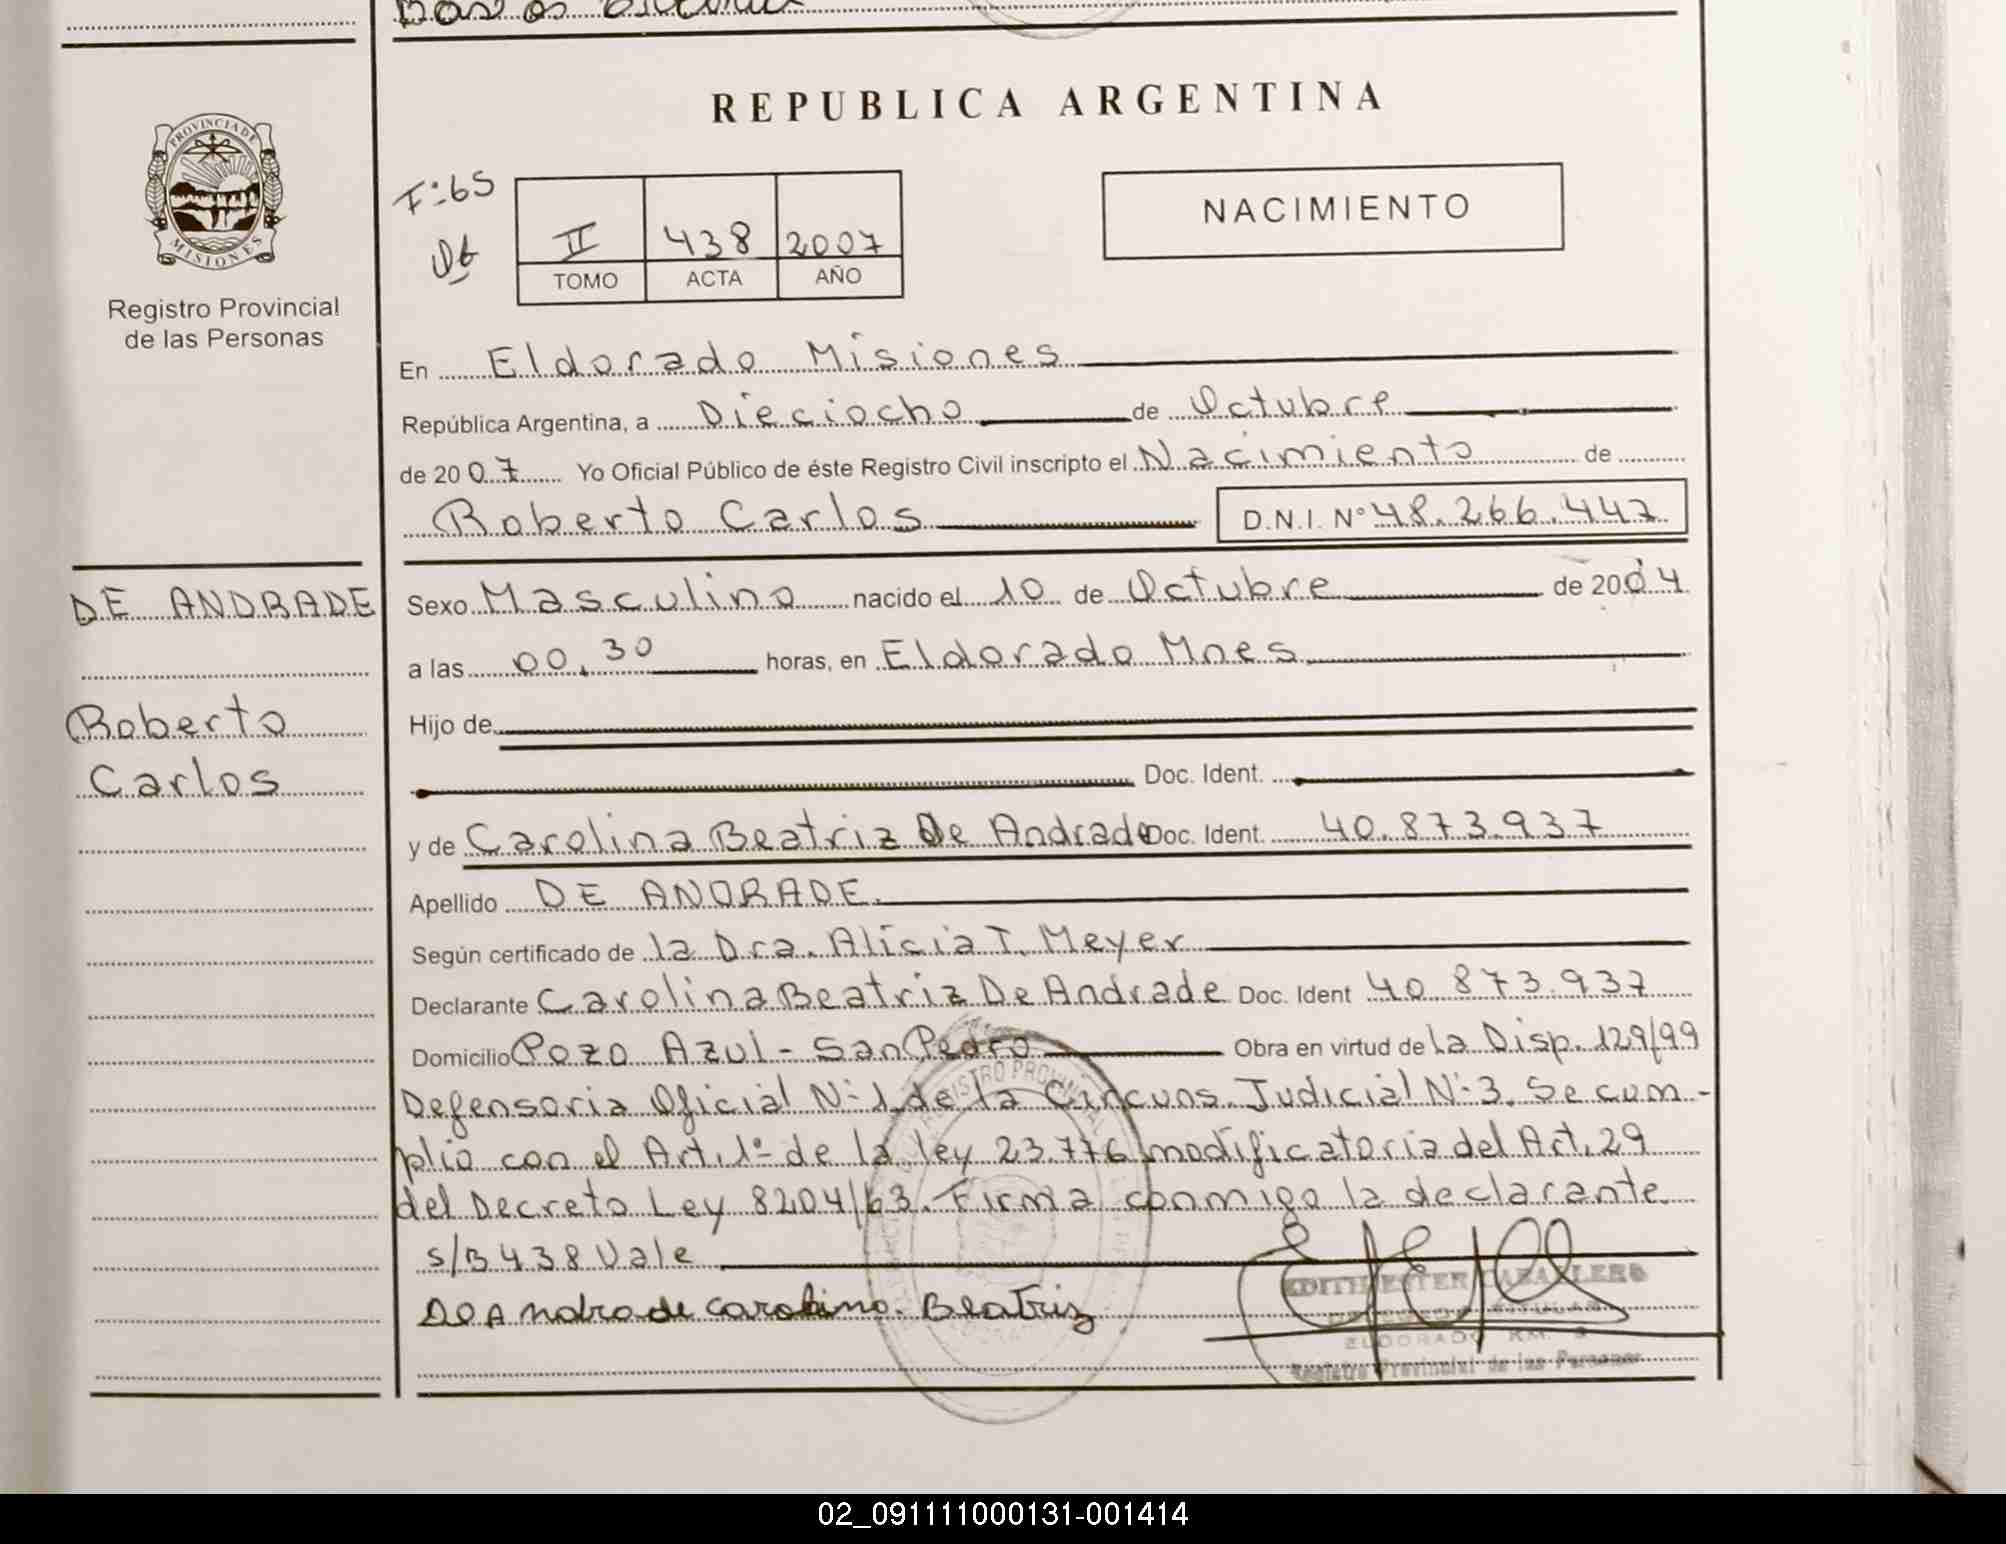 REPUBLICA ARGENTINA
PROVINCIA DE
MISIONES
Registro Provincial
de las Personas
F:65
II 438 2007
TOMO ACTA AÑO
NACIMIENTO
En Eldorado Misiones
República Argentina, a Dieciocho de Octubre
de 2007 Yo Oficial Público de éste Registro Civil inscripto el Nacimiento de
Roberto Carlos D.N.I. Nº 48.266.447
DE ANDRADE
Roberto
Carlos
Sexo Masculino nacido el 10 de Octubre de 2004
a las 00,30 horas, en Eldorado Mnes
Hijo de
Doc. Ident.
y de Carolina Beatriz De Andrade Doc. Ident. 40.873.937
Apellido DE ANDRADE.
Según certificado de la Dra. Alicia T. Meyer
Declarante Carolina Beatriz De Andrade Doc. Ident 40 873.937
Domicilio Pozo Azul - San Pedro Obra en virtud de la Disp. 129/99
Defensoria Oficial Nº1 de la Circuns. Judicial Nº3. Se cum-
plio con el Art. 1º de la ley 23.776 modificatoria del Art. 29
del Decreto Ley 8204/63. Firma conmigo la declarante
s/B 438 Vale
De Andrade Carolina Beatriz
EDITH ESTER CABALLERO
ELDORADO KM. 9
Registro Provincial de las Personas
02_091111000131-001414